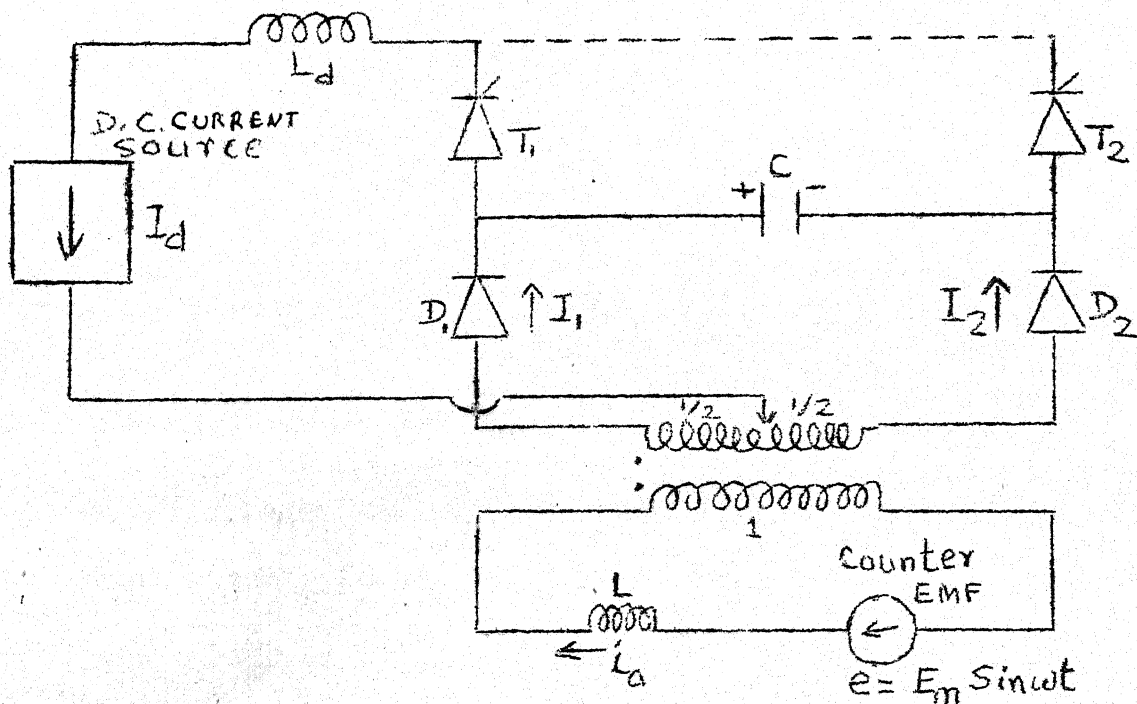 L_d
D.C. CURRENT
SOURCE
I_d
T_1
T_2
C
+ -
D_1
I_1
I_2
D_2
1/2 1/2
1
L
i_a
Counter
EMF
e = E_m Sinωt